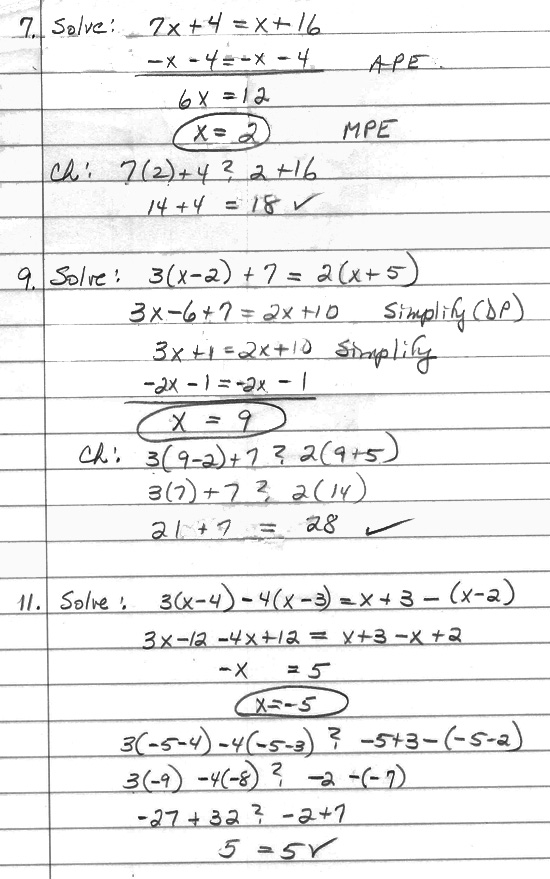 7. Solve: 7x + 4 = x + 16
-x - 4 = -x - 4 APE.
6x = 12
x = 2 MPE
Ch: 7(2)+4 ? 2+16
14+4 = 18 ✓
9. Solve: 3(x-2) + 7 = 2(x+5)
3x-6+7 = 2x+10 Simplify (DP)
3x+1 = 2x+10 Simplify
-2x - 1 = -2x - 1
x = 9
Ch: 3(9-2)+7 ? 2(9+5)
3(7)+7 ? 2(14)
21 + 7 = 28 ✓
11. Solve: 3(x-4) - 4(x-3) = x + 3 - (x-2)
3x-12-4x+12 = x+3-x+2
-x = 5
x=-5
3(-5-4) -4(-5-3) ? -5+3-(-5-2)
3(-9) -4(-8) ? -2 -(-7)
-27 + 32 ? -2+7
5 = 5 ✓